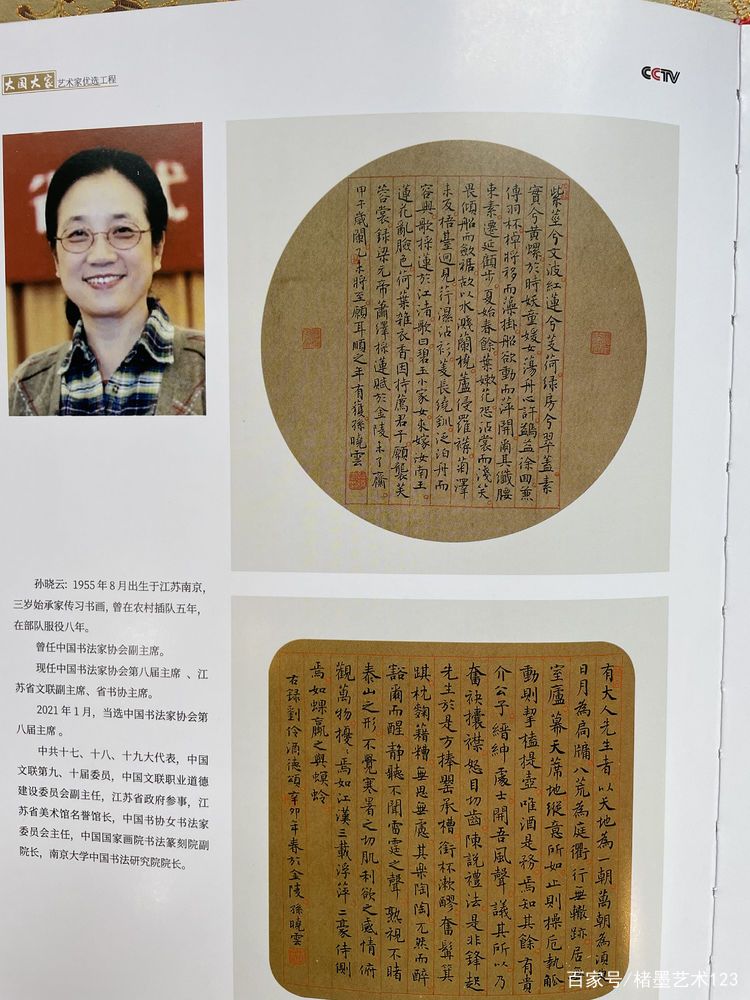 大国大家 艺术家优选工程
CCTV
紫莖兮文波紅蓮兮芰荷绿房兮翠蓋素
實兮黄螺於時妖童媛女蕩舟心許鷁首徐回兼
傳羽杯棹將移而藻掛船欲動而萍開爾其纖腰
束素遷延顧步夏始春餘葉嫩花恐沾裳而淺笑
畏傾船而斂裾故以水濺蘭橈蘆侵羅襪菊澤
未反梧臺迥見荇濕沾衫菱長繞釧泛泊舟而
容與歌採蓮於江渚歌曰碧玉小家女來嫁汝南王
蓮花亂臉色荷葉雜衣香因持薦君子願襲芙
蓉裳録梁元帝蕭繹採蓮賦於金陵未了齋
甲午歲闌乙未將至願耳順之年有復孫曉雲
孙晓云：1955年8月出生于江苏南京，
三岁始承家传习书画，曾在农村插队五年，
在部队服役八年。
曾任中国书法家协会副主席。
现任中国书法家协会第八届主席 、江
苏省文联副主席、省书协主席。
2021年1月，当选中国书法家协会第
八届主席 。
中共十七、十八、十九大代表，中国
文联第九、十届委员，中国文联职业道德
建设委员会副主任，江苏省政府参事，江
苏省美术馆名誉馆长，中国书协女书法家
委员会主任，中国国家画院书法篆刻院副
院长，南京大学中国书法研究院院长。
有大人先生者以天地為一朝萬朝為須
日月為扃牖八荒為庭衢行無轍跡居
室廬幕天席地縱意所如止則操卮執觚
動則挈榼提壺唯酒是務焉知其餘有貴
介公子縉紳處士聞吾風聲議其所以乃
奮袂攘襟怒目切齒陳說禮法是非鋒起
先生於是方捧罌承槽銜杯漱醪奮髯箕
踞枕麴藉糟無思無慮其樂陶陶兀然而醉
豁爾而醒靜聽不聞雷霆之聲熟視不睹
泰山之形不覺寒暑之切肌利欲之感情俯
觀萬物擾擾焉如江漢三載浮萍二豪侍側
焉如蜾蠃之與螟蛉
右録劉伶酒德頌辛卯年春於金陵孫曉雲
百家号/楮墨艺术123